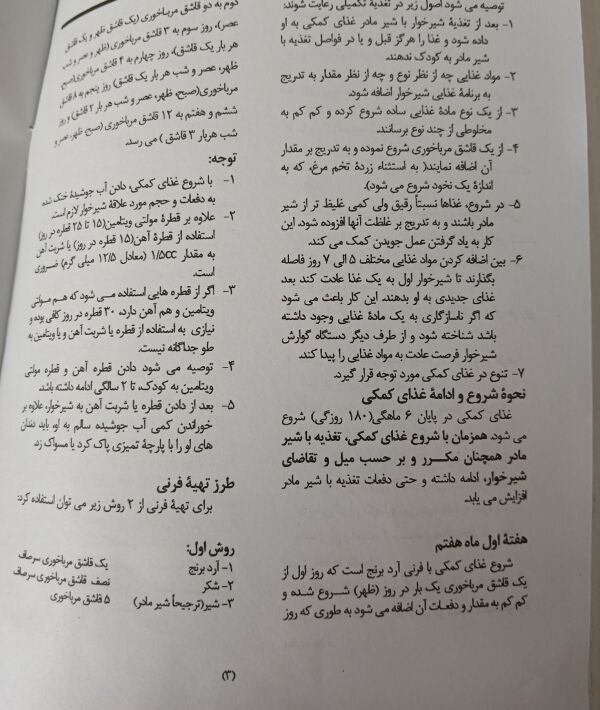 توصیه می شود اصول زیر در تغذیه تکمیلی رعایت شوند:
۱- بعد از تغذیهٔ شیرخوار با شیر مادر غذای کمکی به او
داده شود و غذا را هرگز قبل و یا در فواصل تغذیه با
شیر مادر به کودک ندهند.
۲- مواد غذایی چه از نظر نوع و چه از نظر مقدار به تدریج
به برنامهٔ غذایی شیرخوار اضافه شود.
۳- از یک نوع مادهٔ غذایی ساده شروع کرده و کم کم به
مخلوطی از چند نوع برسانند.
۴- از یک قاشق مرباخوری شروع نموده و به تدریج بر مقدار
آن اضافه نمایند( به استثناء زردهٔ تخم مرغ، که به
اندازهٔ یک نخود شروع می شود).
۵- در شروع، غذاها نسبتاً رقیق ولی کمی غلیظ تر از شیر
مادر باشند و به تدریج بر غلظت آنها افزوده شود. این
کار به یاد گرفتن عمل جویدن کمک می کند.
۶- بین اضافه کردن مواد غذایی مختلف ۵ الی ۷ روز فاصله
بگذارند تا شیرخوار اول به یک غذا عادت کند بعد
غذای جدیدی به او بدهند. این کار باعث می شود
که اگر ناسازگاری به یک مادهٔ غذایی وجود داشته
باشد شناخته شود و از طرف دیگر دستگاه گوارش
شیرخوار فرصت عادت به مواد غذایی را پیدا کند.
۷- تنوع در غذای کمکی مورد توجه قرار گیرد.
نحوهٔ شروع و ادامهٔ غذای کمکی
غذای کمکی در پایان ۶ ماهگی(۱۸۰ روزگی) شروع
می شود. همزمان با شروع غذای کمکی، تغذیه با شیر
مادر همچنان مکـــرر و بر حسب میل و تقاضای
شیرخوار، ادامه داشته و حتی دفعات تغذیه با شیر مادر
افزایش می یابد.
هفتهٔ اول ماه هفتم
شروع غذای کمکی با فرنی آرد برنج است که روز اول از
یک قاشق مرباخوری یک بار در روز (ظهر) شـروع شده و
کم کم به مقدار و دفعـات آن اضافه می شود به طوری که روز
دوم به دو قاشق مرباخوری (یک قاشق ظهر و یک قاشق
عصر)، روز سوم به ۳ قاشق مرباخوری (ظهر و عصر و شب
هر بار یک قاشق)، روز چهارم به ۴ قاشق مرباخوری(صبح،
ظهر، عصر و شب هر بار یک قاشق) روز پنجم به ۸ قاشق
مرباخوری(صبح، ظهر، عصر و شب هر بار ۲ قاشق) و روز
ششم و هفتم به ۱۲ قاشق مرباخوری (صبح، ظهر، عصر و
شب هربار ۳ قاشق ) می رسد.
توجه:
۱- با شروع غذای کمکی، دادن آب جوشیدهٔ خنک شده
به دفعات و حجم مورد علاقهٔ شیرخوار لازم است.
۲- علاوه بر قطرهٔ مولتی ویتامین(۱۵ تا ۲۵ قطره در روز)
استفاده از قطرهٔ آهن(۱۵ قطره در روز) یا شربت آهن
به مقدار ۱/۵CC (معادل ۱۲/۵ میلی گرم) ضروری
است.
۳- اگر از قطره هایی استفاده می شود که هم مولتی
ویتامین و هم آهن دارد، ۳۰ قطره در روز کافی بوده و
نیازی به استفاده از قطره یا شربت آهن و یا ویتامین به
طو جداگانه نیست.
۴- توصیه می شود دادن قطره آهن و قطره مولتی
ویتامین به کودک، تا ۲ سالگی ادامه داشته باشد.
۵- بعد از دادن قطره یا شربت آهن به شیرخوار، علاوه بر
خوراندن کمی آب جوشیده سالم به او، باید دندان
های او را با پارچهٔ تمیزی پاک کرد یا مسواک زد.
طرز تهیهٔ فرنی
برای تهیهٔ فرنی از ۲ روش زیر می توان استفاده کرد:
روش اول:
۱- آرد برنج یک قاشق مرباخوری سرصاف
۲- شکر نصف قاشق مرباخوری سرصاف
۳- شیر(ترجیحاً شیر مادر) ۵ قاشق مرباخوری
(۳)